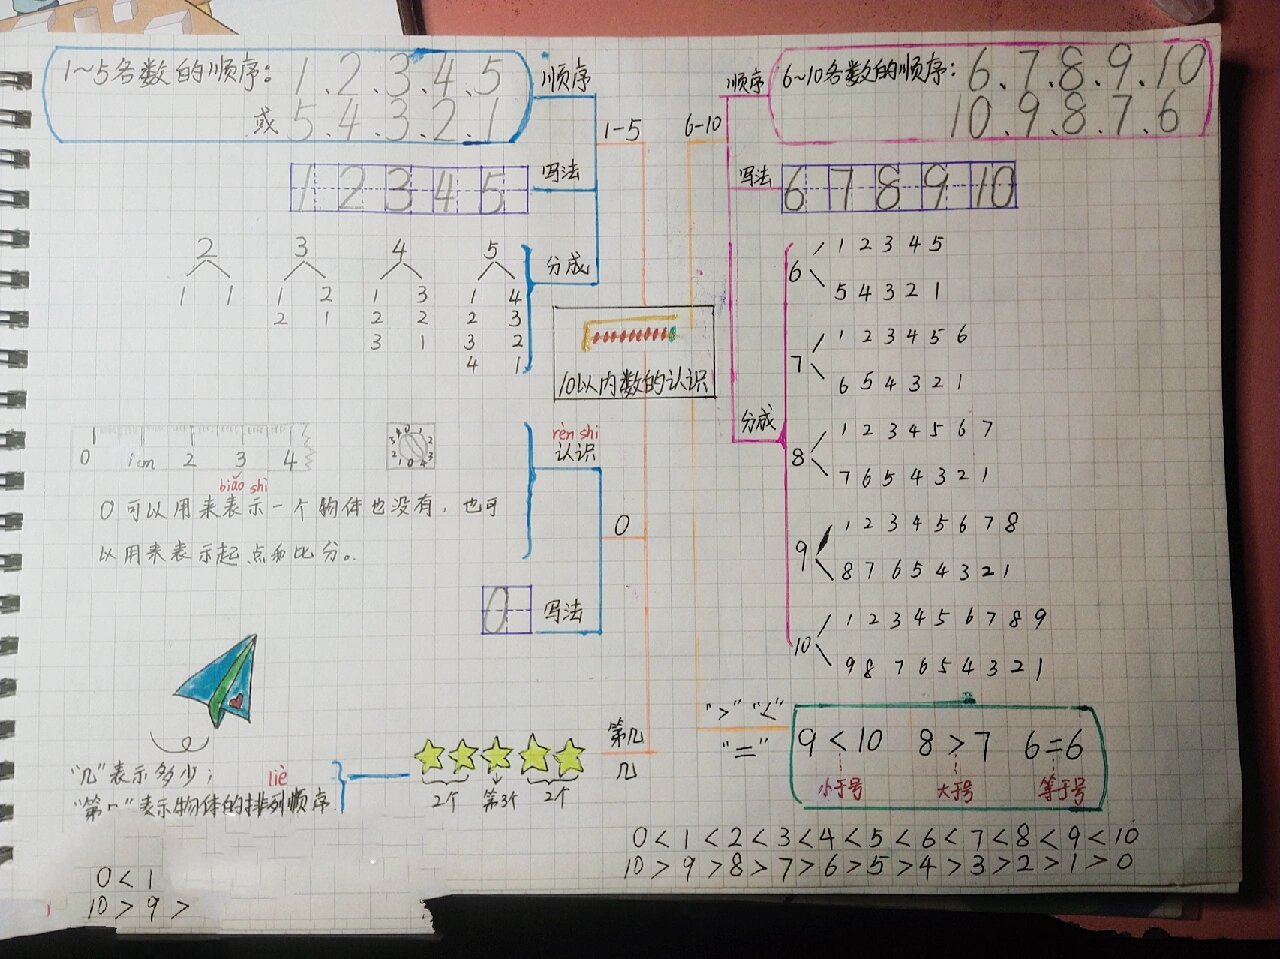 1~5各数的顺序: 1.2.3.4.5
或 5.4.3.2.1
顺序
1-5
写法
1 2 3 4 5
分成
2 3 4 5
1 1 1 2 1 3 1 4
2 1 2 2 2 3
3 1 3 2
4 1
10以内数的认识
6-10
顺序
6~10各数的顺序: 6.7.8.9.10
10.9.8.7.6
写法
6 7 8 9 10
分成
6
1 2 3 4 5
5 4 3 2 1
7
1 2 3 4 5 6
6 5 4 3 2 1
8
1 2 3 4 5 6 7
7 6 5 4 3 2 1
9
1 2 3 4 5 6 7 8
8 7 6 5 4 3 2 1
10
1 2 3 4 5 6 7 8 9
9 8 7 6 5 4 3 2 1
rèn shi
认识
0
0 1cm 2 3 4
biǎo shì
0可以用来表示一个物体也没有，也可
以用来表示起点和比分。
写法
0
第几
几
2个 第3个 2个
"几"表示多少;
liè
"第几"表示物体的排列顺序
">" "<"
"="
9<10 8>7 6=6
小于号 大于号 等于号
0<1<2<3<4<5<6<7<8<9<10
10>9>8>7>6>5>4>3>2>1>0
0<1
10>9>